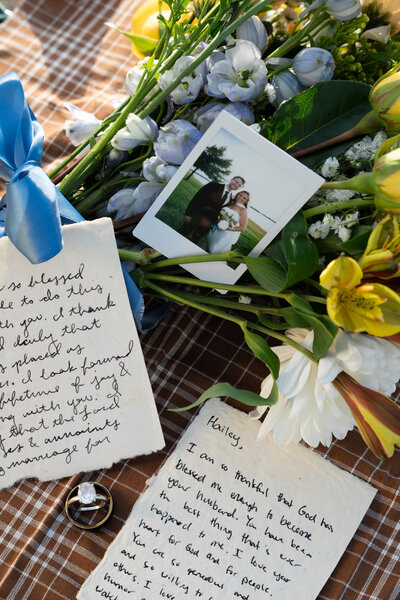 so blessed
le to do this
ith you. I thank
d daily that
s placed us
r. I look forward
ifetime of joy &
ng with you. I
that the Lord
es & annoints
marriage for
Hailey,
I am so thankful that God has
blessed me enough to become
your husband. You have been
the best thing that's ever
happened to me. I love your
heart for God and for people.
You are so generous and
and so willing to
others. I love
humor